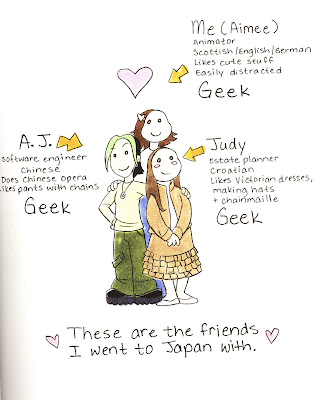 Me (Aimee)
Animator
Scottish/English/German
Likes cute stuff
Easily distracted
Geek
A.J.
Software engineer
Chinese
Does Chinese Opera
Likes pants with chains
Geek
Judy
Estate planner
Croatian
Likes Victorian dresses,
making hats
+ chainmaille
Geek
These are the friends
I went to Japan with.